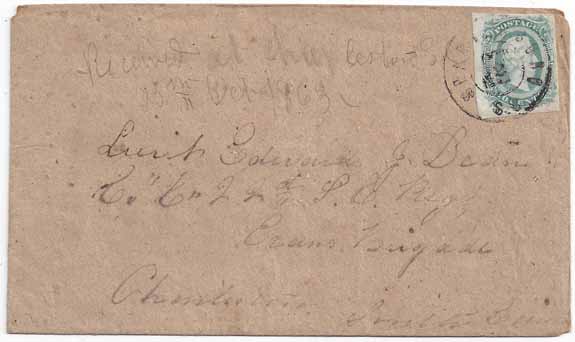 Received at Charleston S
15th Oct 1863
POSTAGE
Lieut Edward J. Dean
Co "C" 22nd S. C. Regt
Evans Brigade
Charleston
South Car